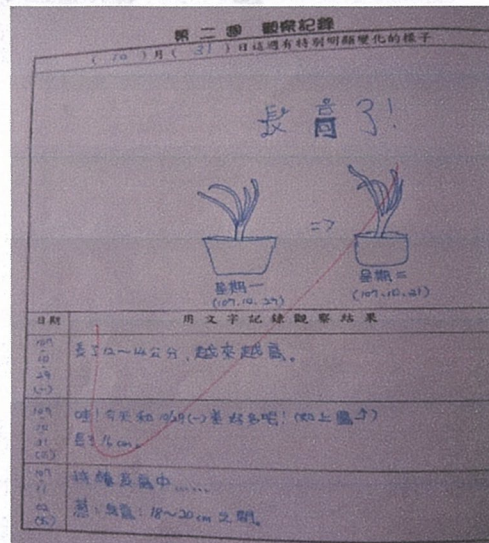 第二週 觀察記錄
( 10 )月( 31 )日這週有特別明顯變化的樣子
長高了!
=>
星期一
(107.10.29)
星期三
(107.10.31)
日期
用文字記錄觀察結果
107
10
29
(一)
長了12~14公分,越來越高。
10
31
(三)
哇!今天和10/29(一)差好多喔!(如上圖↑)
長了16cm。
107
11
02
(五)
持續長高中……
蔥: 18~20cm之間。